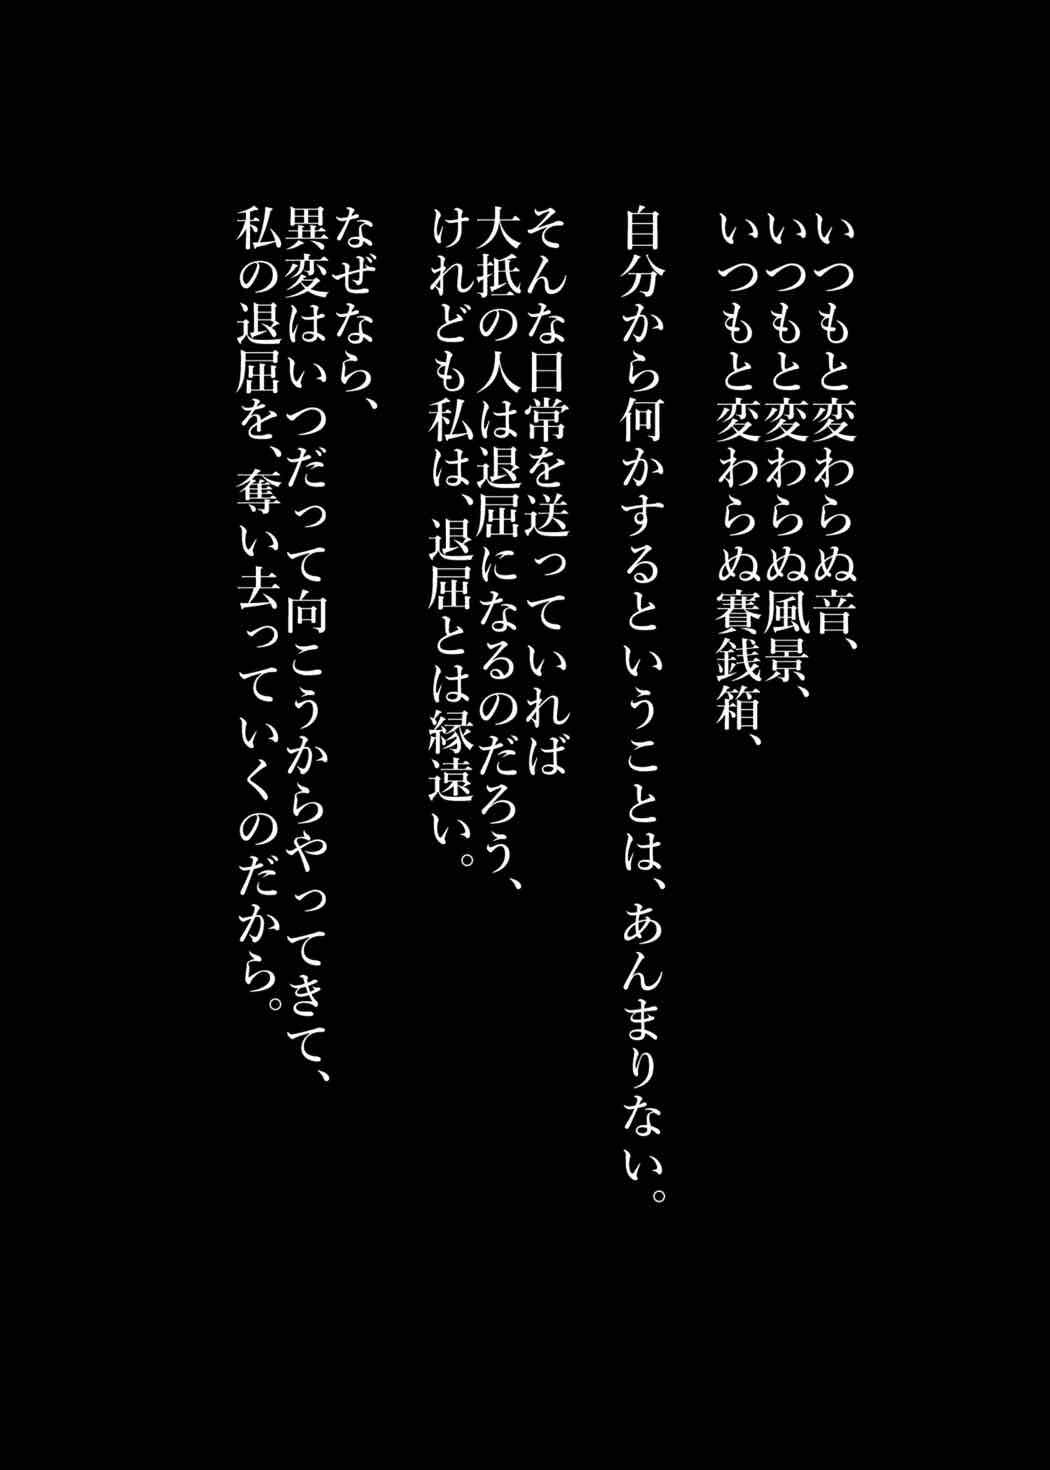 いつもと変わらぬ音、
いつもと変わらぬ風景、
いつもと変わらぬ賽銭箱、
自分から何かするということは、あんまりない。
そんな日常を送っていれば
大抵の人は退屈になるのだろう、
けれども私は、退屈とは縁遠い。
なぜなら、
異変はいつだって向こうからやってきて、
私の退屈を、奪い去っていくのだから。